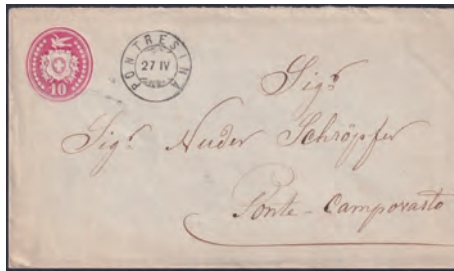 10
PONTRESINA
27 IV
Sigr.
Sigr. Nuder Schröpfer
Ponte - Campovasto